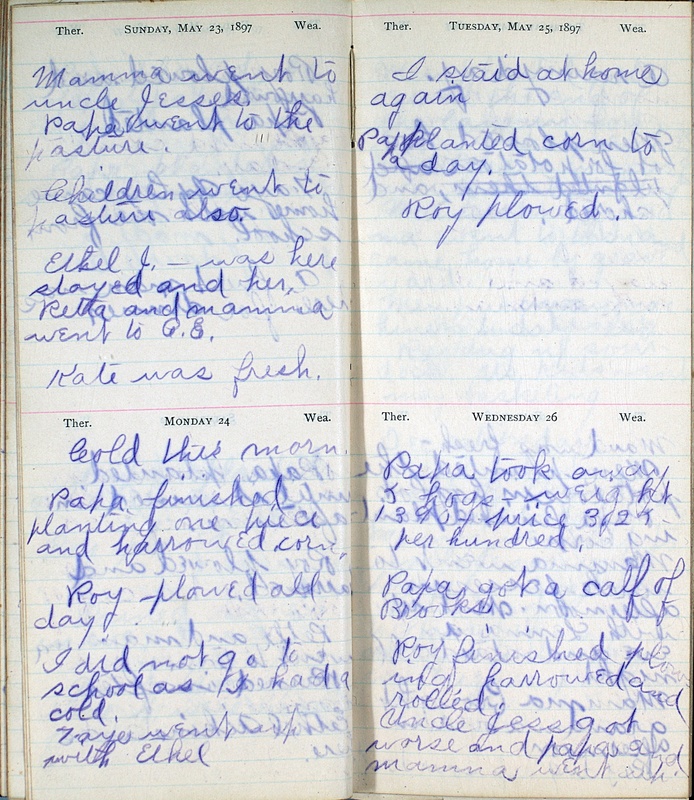 Ther. SUNDAY, MAY 23, 1897 Wea.
Mamma went to
uncle Jesses.
Papa went to the
pasture.
Children went to
pasture also.
Ethel J. – was here
stayed and her,
Retta and mamma
went to C.E.
Kate was fresh.
Ther. MONDAY 24 Wea.
Cold this morn.
Papa finished
planting one piece
and harrowed corn.
Roy plowed all
day.
I did not go to
school as I had a
cold.
went up
with Ethel
Ther. TUESDAY, MAY 25, 1897 Wea.
I staid at home
again
Papa planted corn to
a day.
Roy plowed.
Ther. WEDNESDAY 26 Wea.
Papa took away
5 hogs – weight
price 3.25
per hundred.
Papa got a calf of
Brooks.
Roy finished plo
ing harrowed and
rolled.
Uncle Jess got
worse and papa and
mamma went up.